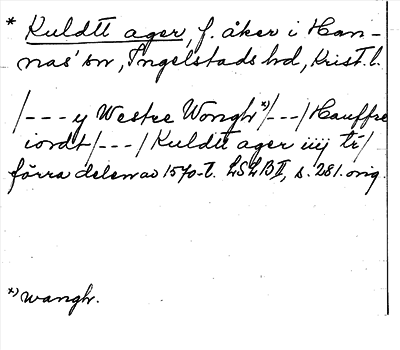 * Kuldtt ager, f. åker i Ham-
nas' sn, Ingelstads hd, Krist. l.
/---y Westre Wongh*)/---/Hauffre
iordt/---/Kuldtt ager iiij tr/
förra delen av 1570-t. LSLB II, s. 281. orig.
*) wangh.